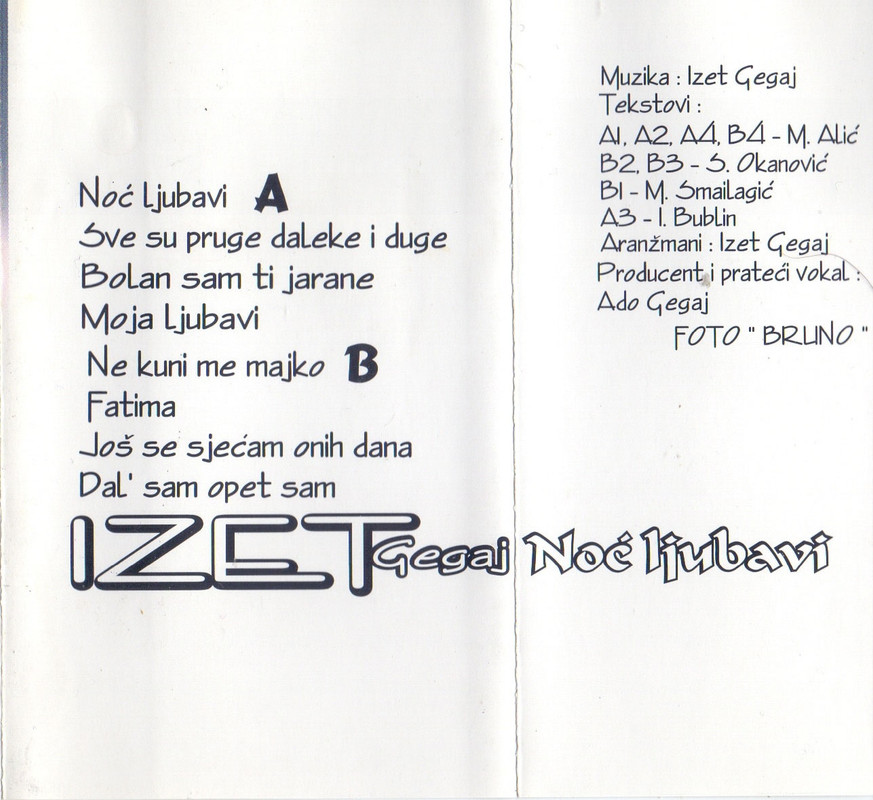 Noć Ljubavi A
Sve su pruge daleke i duge
Bolan sam ti jarane
Moja Ljubavi
Ne kuni me majko B
Fatima
Još se sjećam onih dana
Dal' sam opet sam
IZET Gegaj Noć ljubavi
Muzika : Izet Gegaj
Tekstovi :
A1, A2, A4, B4 - M. Alić
B2, B3 - S. Okanović
B1 - M. Smailagić
A3 - I. Bublin
Aranžmani : Izet Gegaj
Producent i prateći vokal :
Ado Gegaj
FOTO " BRUNO "